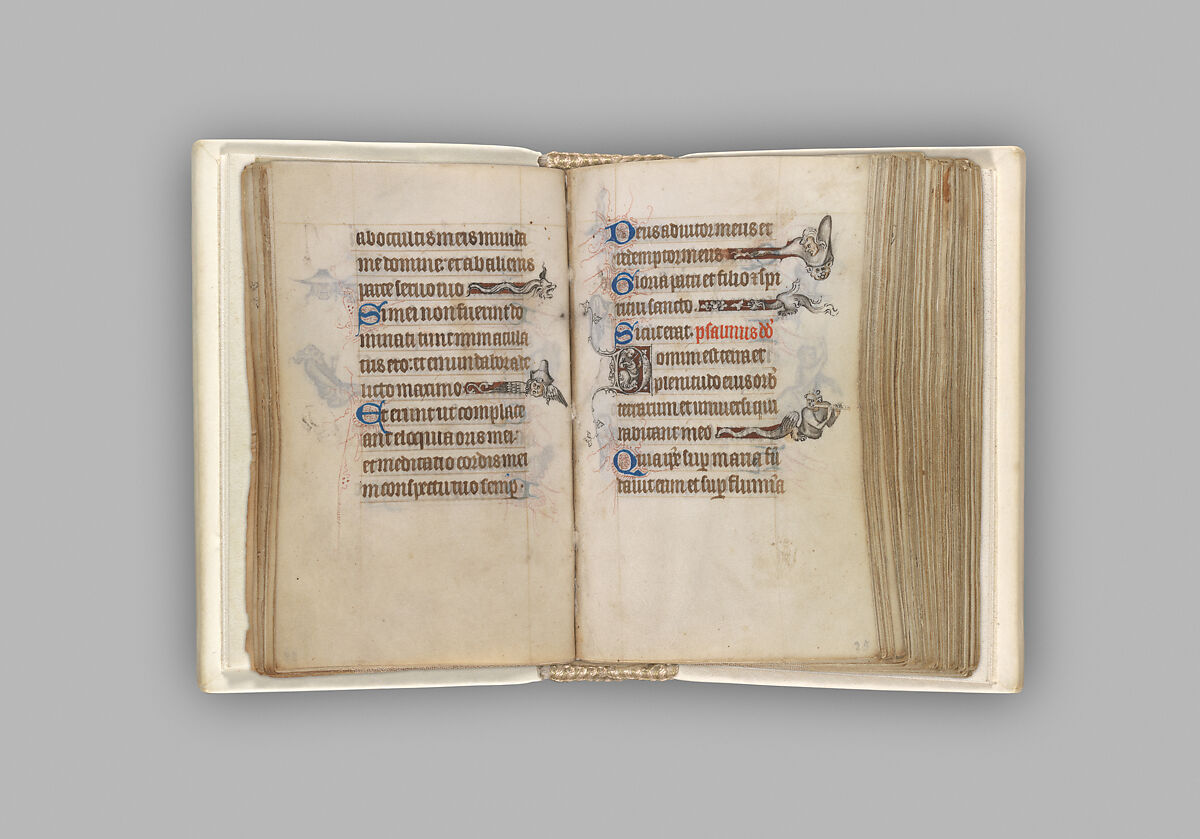 ab occultis meis munda
me domine: et ab alienis
parce servo tuo
Si mei non fuerint do
minati tunc immacula
tus ero: et emundabor a de
licto maximo
Et erunt ut complace
ant eloquia oris mei:
et meditatio cordis mei
in conspectu tuo semp.
Deus adiutor meus et
redemptor meus
Gloria patri et filio et spi
ritui sancto.
Sicut erat. psalmus dd
Domini est terra et
plenitudo eius orb
terrarum et universi qui
habitant in eo
Quia ipe sup maria fu
davit eum et sup flumina